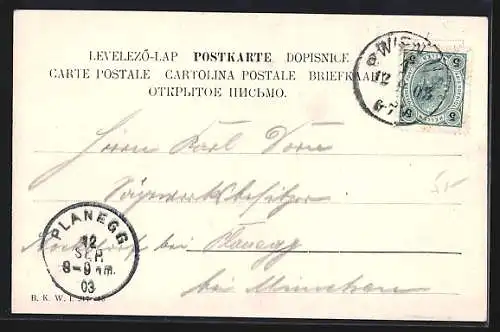 LEVELEZŐ-LAP POSTKARTE DOPISNICE
CARTE POSTALE CARTOLINA POSTALE BRIEFKAART
ОТКРЫТОЕ ПИСЬМО.
WIEN
12
03
6-7
5 5
5 5
Herrn Karl
Sägewerksbesitzer
bei Planegg
bei München
PLANEGG
12
SEP.
8-9 Nm.
03
B. K. W. I.